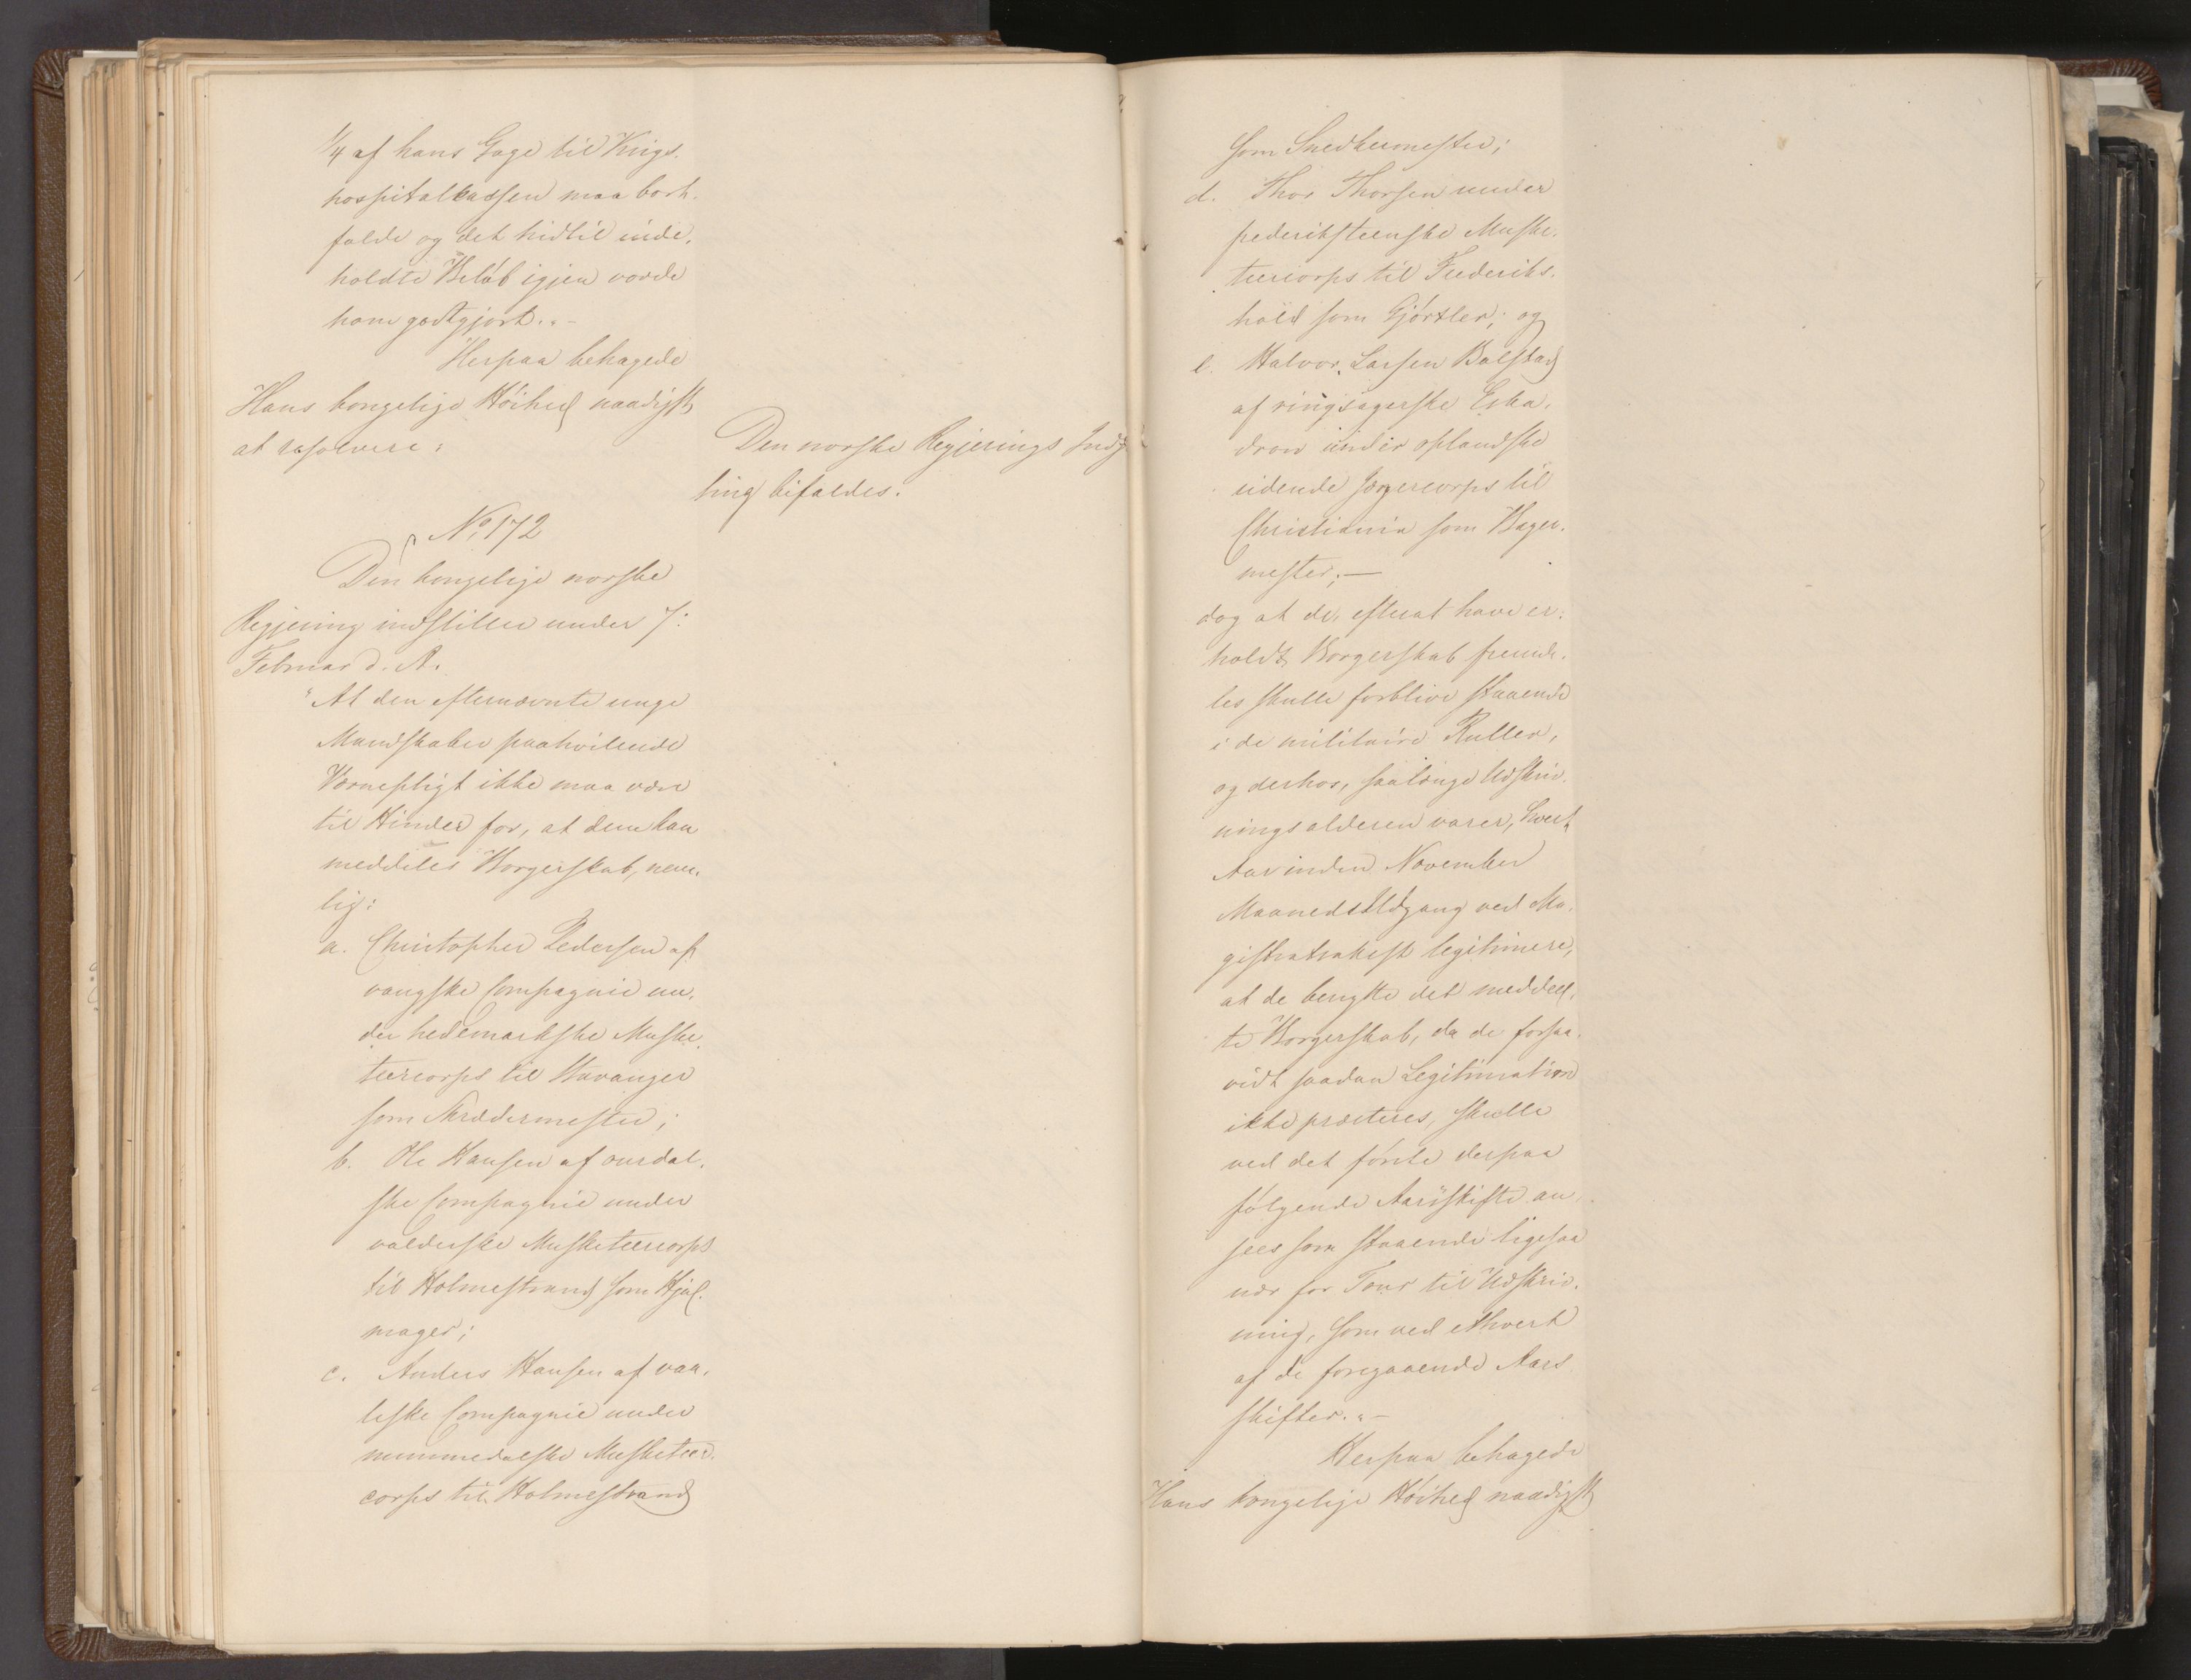 1/4 af hans Gage til Krigs-
hospitalkassen maa bort-
falde og det hidtil inde-
holdte Beløb igjen vorde
ham godtgjort."-
Herpaa behagede
Hans kongelige Høihed naadigst
at resolvere:
Den norske Regjerings Indst
ling bifaldes.
No 172
Den kongelige norske
Regjering indstiller under 7:
Februar d. A.
"At den efternævnte unge
Mandskaber paahvilende
Værnepligt ikke maa være
til Hinder for, at dem kan
meddeles Borgerskab, nem-
lig:
a. Christopher Pedersen af
vangske Compagnie un-
der hedemarkske Muske-
teercorps til Stavanger
som Skrædermester;
b. Ole Hansen af aurdal-
ske Compagnie under
valderske Musketeercorps
til Holmestrand som Hjul-
mager;
c. Anders Hansen af vaa-
leske Compagnie under
nummedalske Musketeer-
corps til Holmestrand
som Snedkermester;
d. Thor Thorsen under
frederiksteenske Muske-
teercorps til Frederiks-
hald som Gjørtler; og
e. Halvor Larsen Balstad
af ringsagerske Eska-
dron under oplandske
ridende Jægercorps til
Christiania som Bager-
mester;-
dog at de, efterat have er-
holdt Borgerskab fremde-
les skulle forblive staaende
i de militaire Ruller,
og derhos, saalænge Udskriv-
ningsalderen varer, hvert
Aar inden November
Maaneds Udgang ved Ma-
gistratsattest legitimere,
at de benytte det meddeel-
te Borgerskab, da de forsaa-
vidt saadan Legitimation
ikke præsteres, skulle
ved det første derpaa
følgende Aarsskifte an-
sees som staaende ligesaa
nær for Tour til Udskriv-
ning, som ved ethvert
af de foregaaende Aars-
skifter."-
Herpaa behagede
Hans kongelige Høihed naadigst